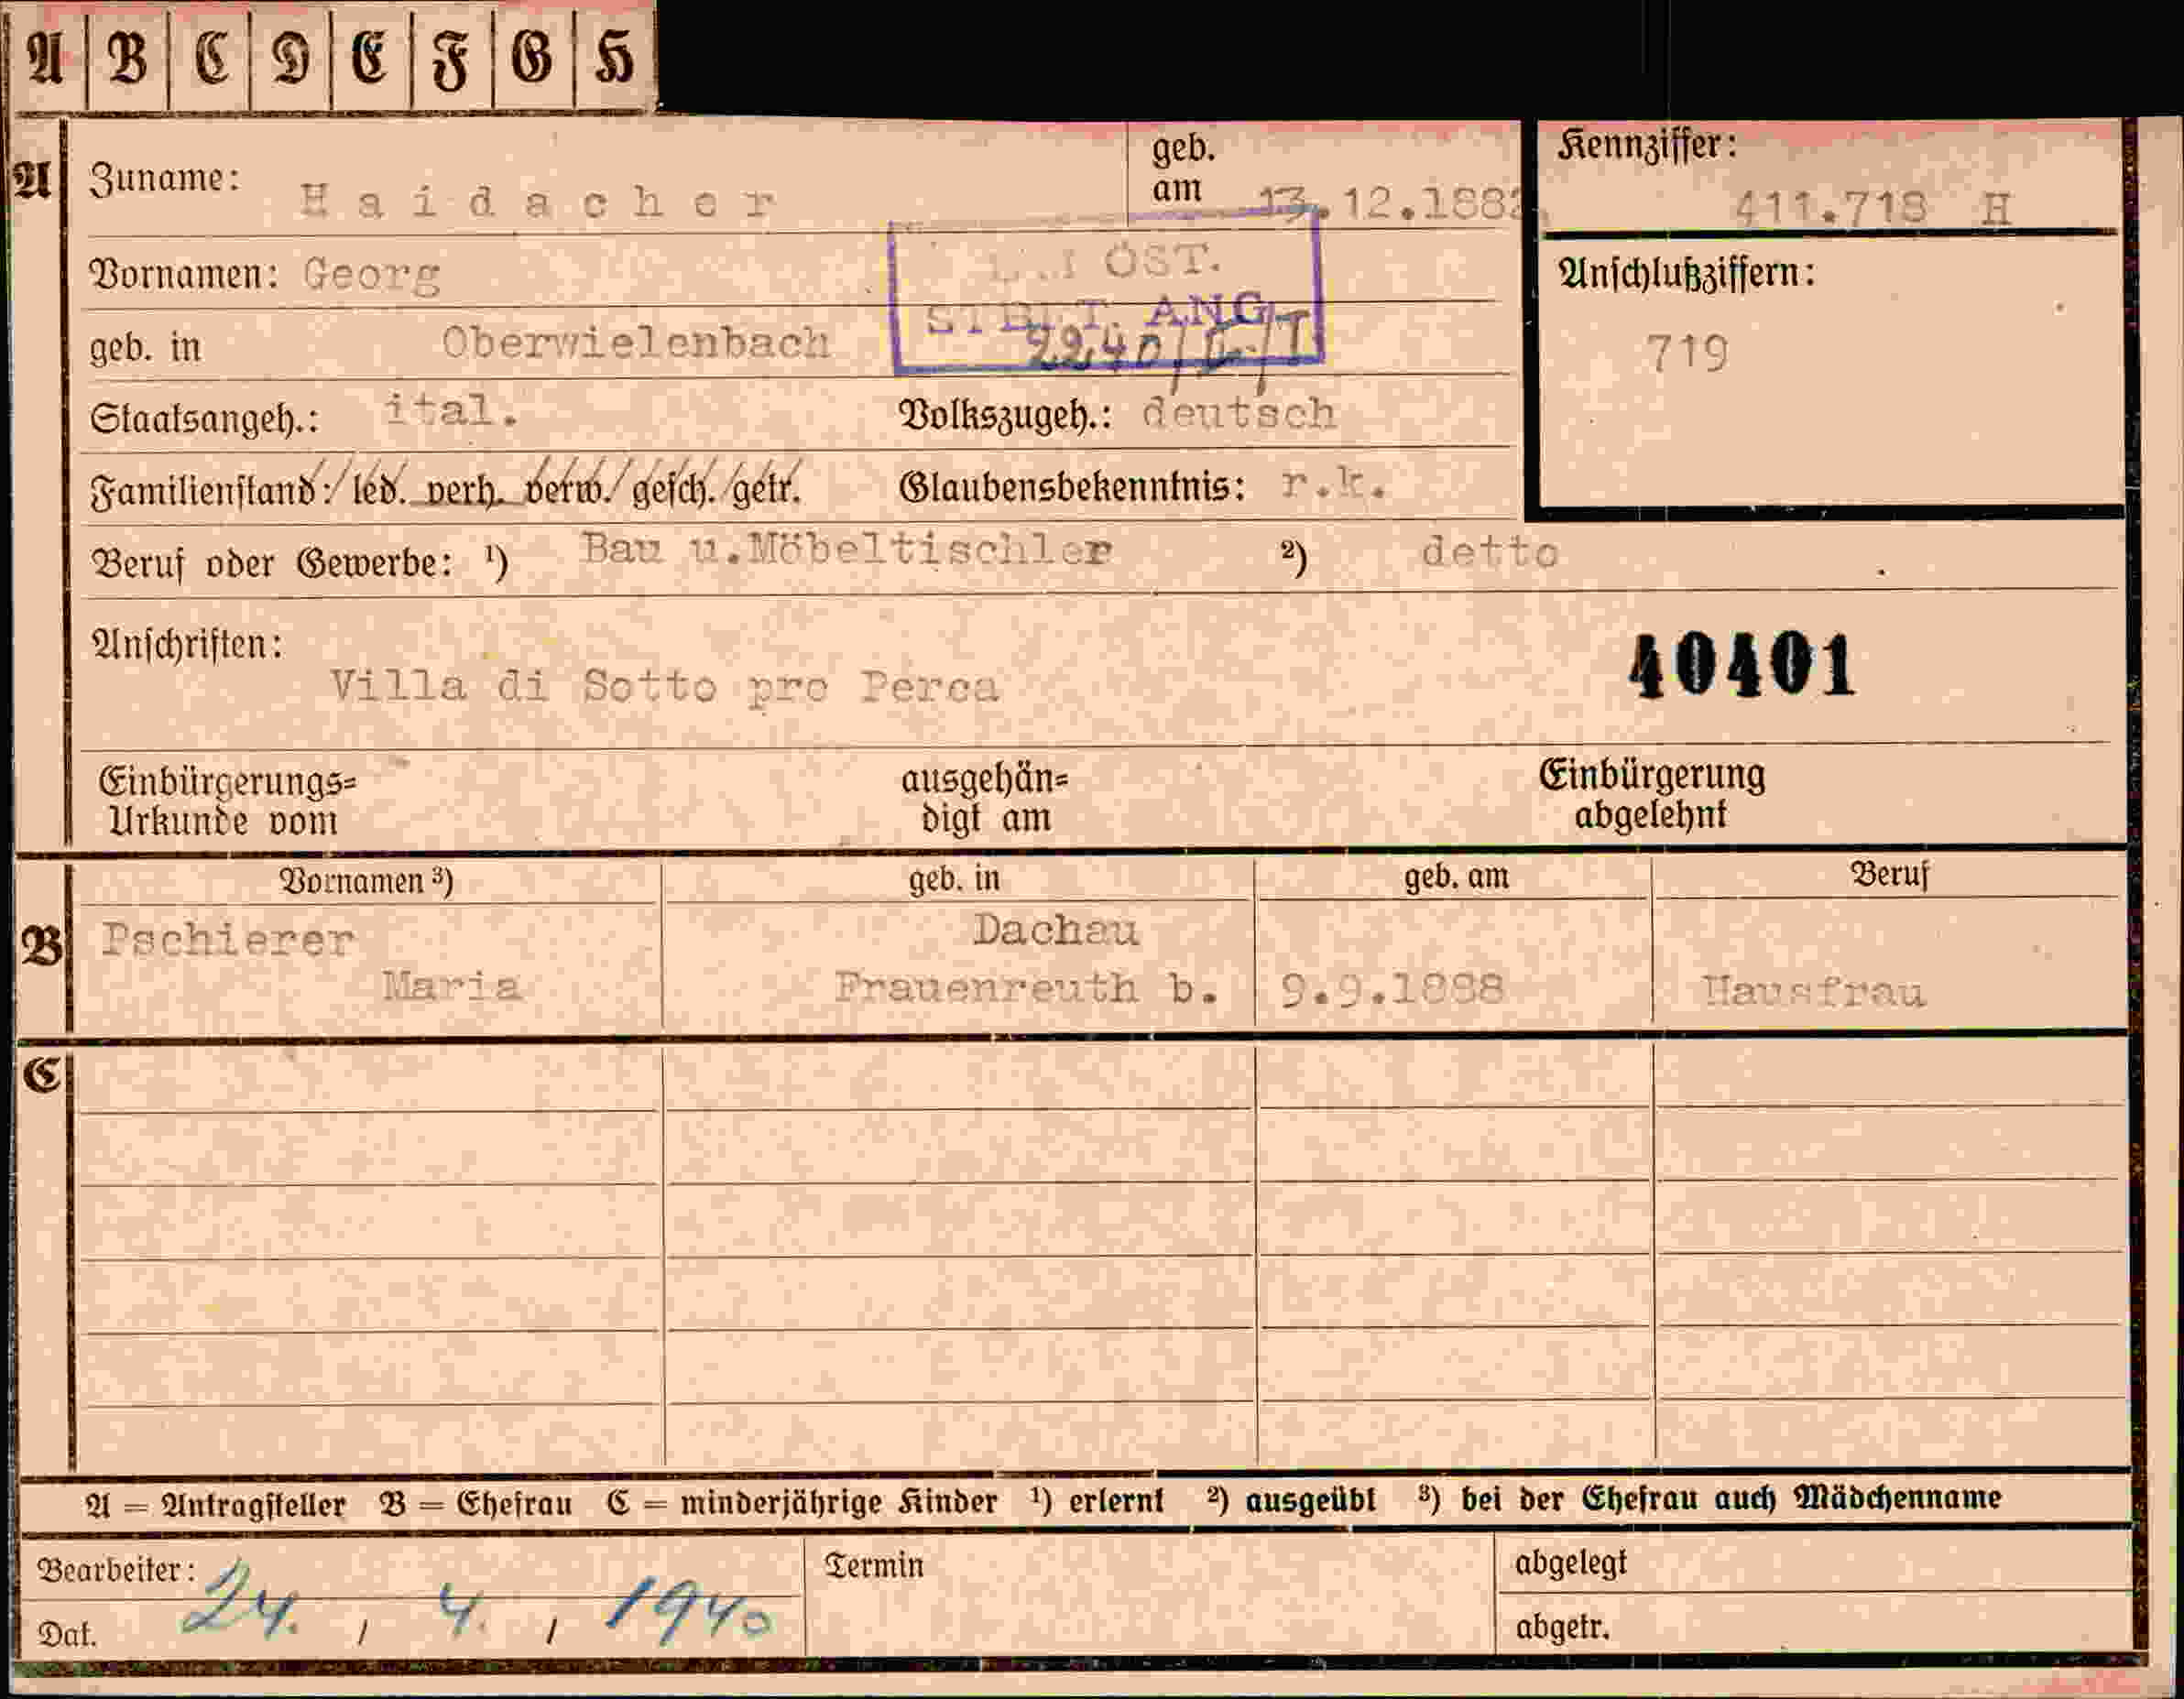 A B C D E F G H
A
Zuname: Haidacher
geb. am 13.12.188
Kennziffer: 411.718 H
Vornamen: Georg
ÖST.
ANG.
Anschlußziffern:
719
geb. in Oberwielenbach
Staatsangeh.: ital. Volkszugeh.: deutsch
Familienstand: led. verh. verw. gesch. getr. Glaubensbekenntnis: r.k.
Beruf oder Gewerbe: ¹) Bau u.Möbeltischler ²) detto
Anschriften:
40401
Villa di Sotto pro Perca
Einbürgerungs= ausgehän= Einbürgerung
Urkunde vom digt am abgelehnt
Vornamen ³) geb. in geb. am Beruf
B
Pschierer Dachau
Maria Frauenreuth b. 9.9.1888 Hausfrau
C
A = Antragsteller B = Ehefrau C = minderjährige Kinder ¹) erlernt ²) ausgeübt ³) bei der Ehefrau auch Mädchenname
Bearbeiter: Termin abgelegt
Dat. 24. / 4. / 1940 abgetr.